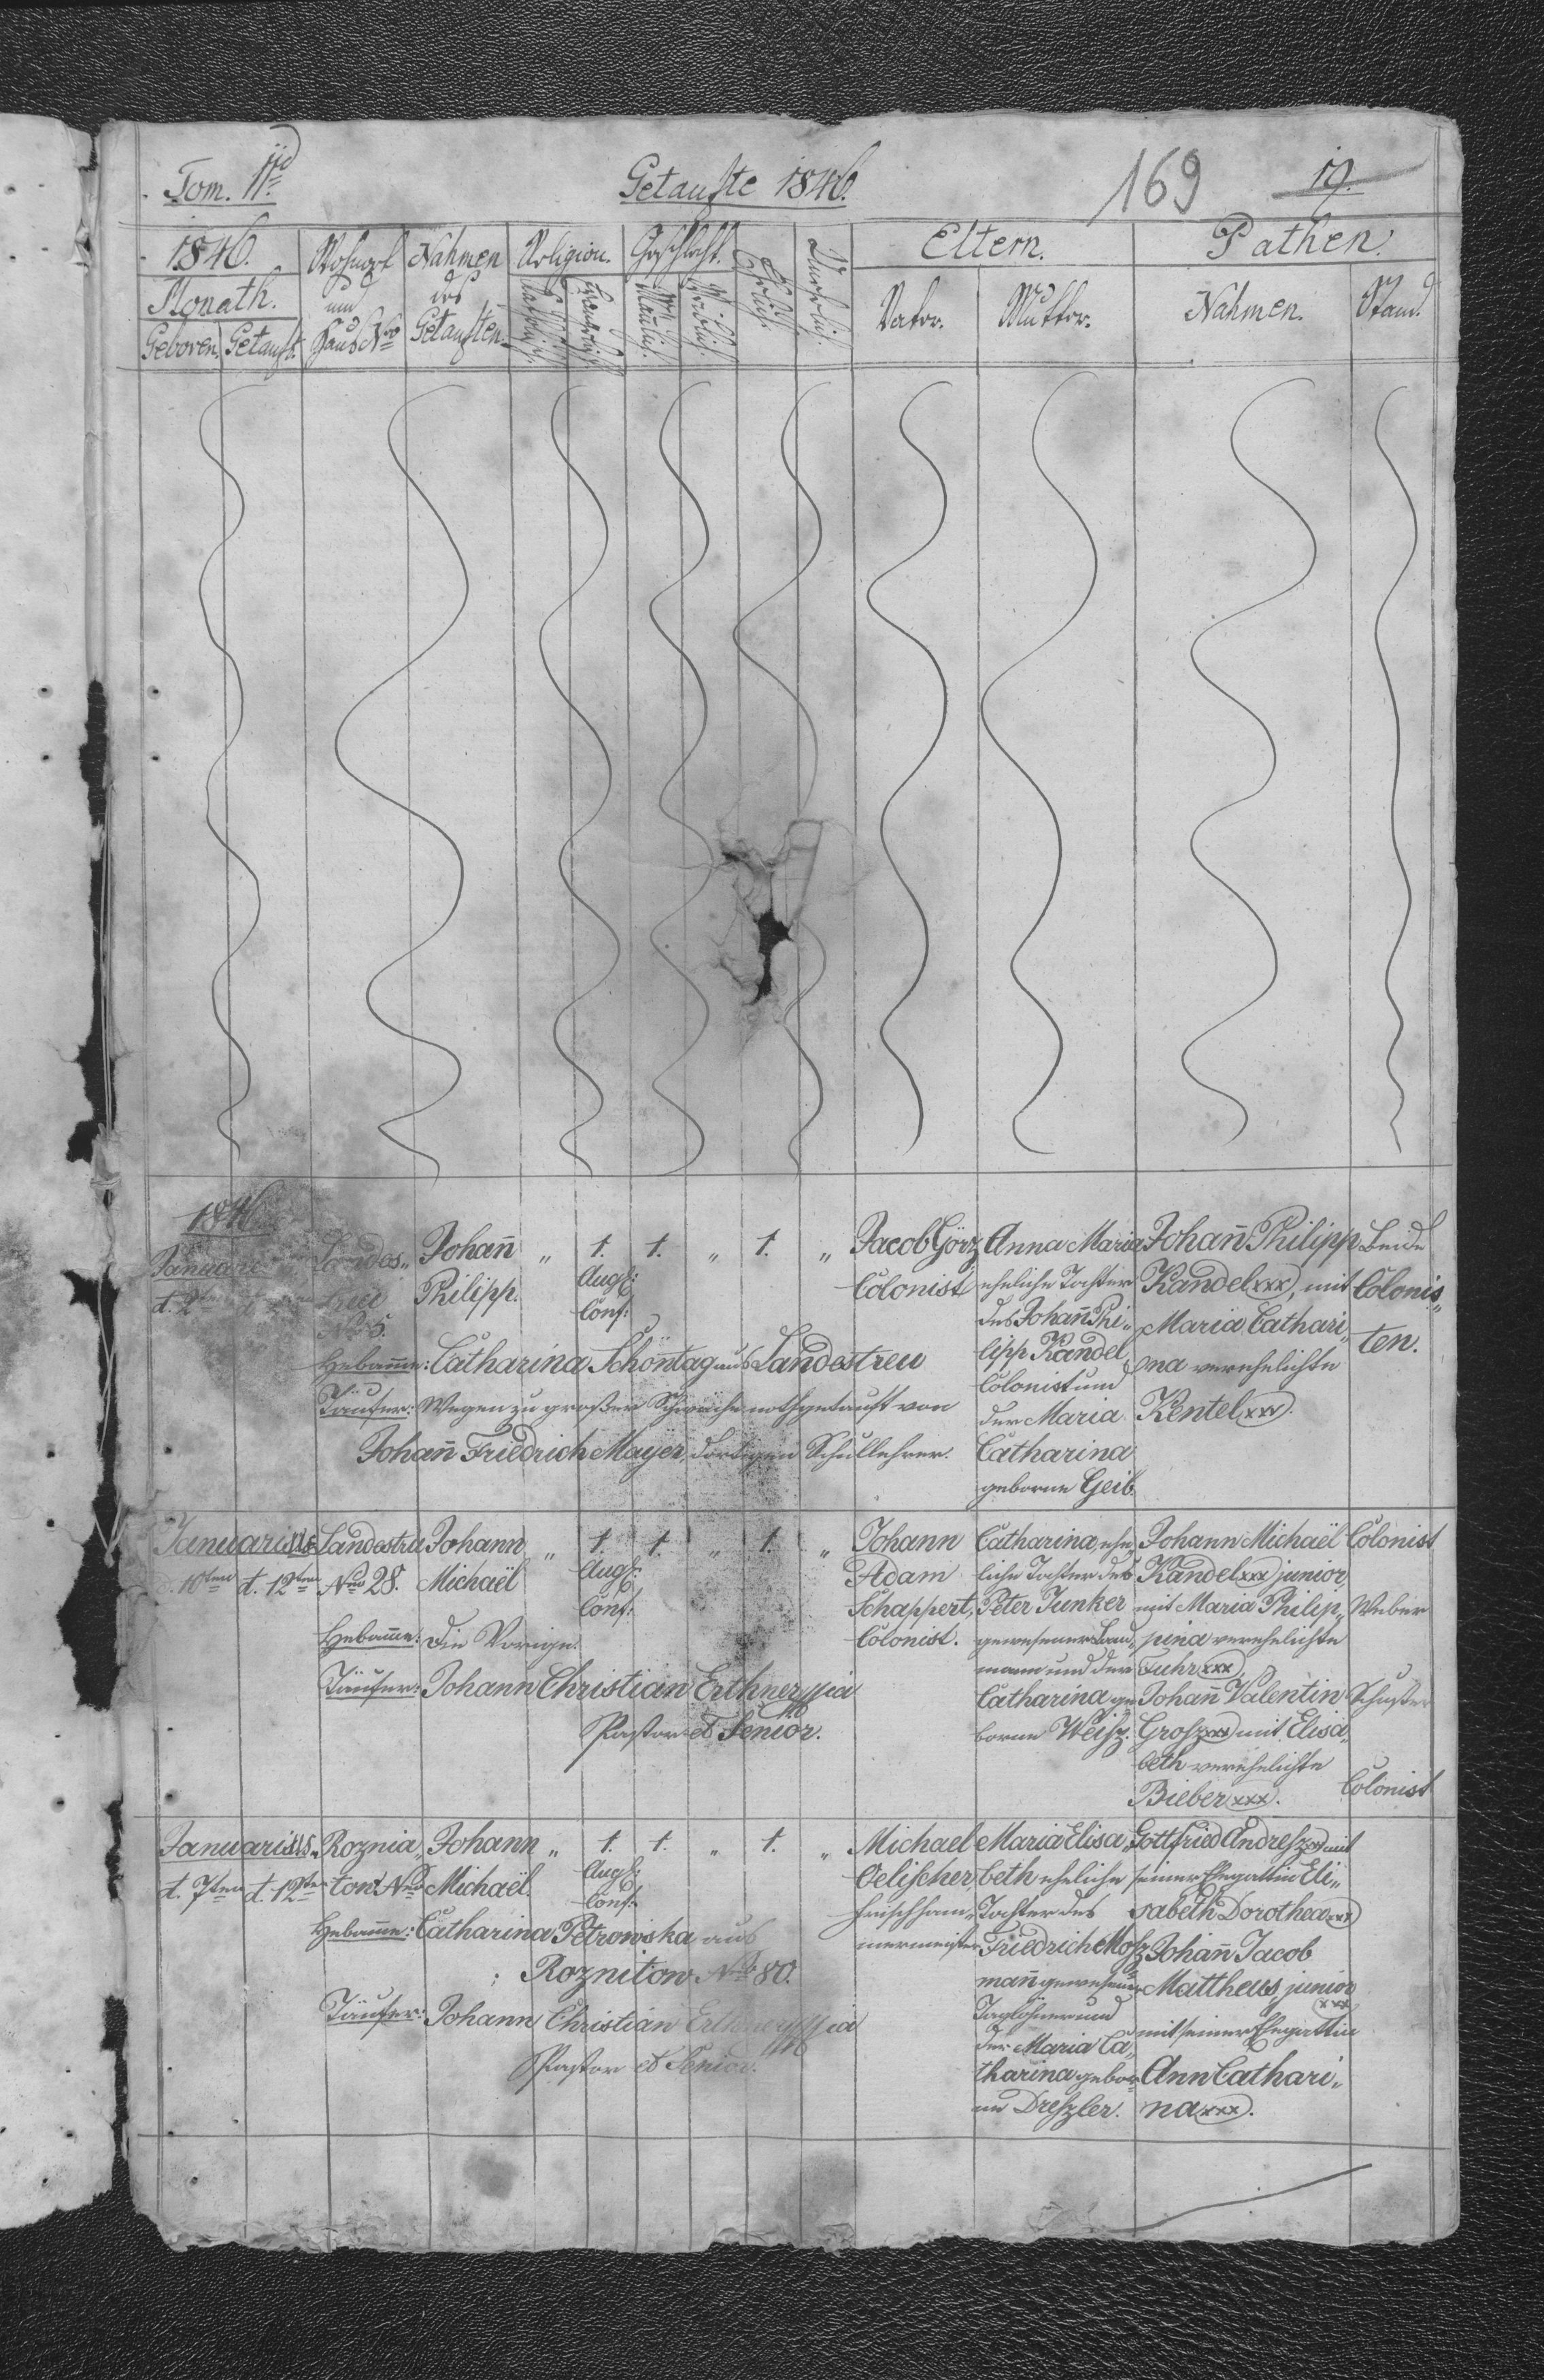 Tom. II.
Getaufte 1846.
169
19.
1846.
Monath.
Geboren. Getauft.
Wohnort
und
Haus Nro
Nahmen
des
Getauften.
Religion.
Katholisch.
Geschlecht.
Männlich.
Weiblich.
Ehelich.
Unehelich.
Eltern.
Vater.
Mutter.
Pathen.
Nahmen.
Stand.
1846
Januarii
d. 2ten
Landes„
treu
Nro 5.
Johañ
Philipp.
„ 1. 1. „ 1. „
Augs:
Conf:
Jacob Görz
Colonist
Anna Maria
eheliche Tochter
des Johañ Phi„
lipp Kandel
Colonist und
der Maria
Catharina
geborne Geib.
Johañ Philipp
Kandel xxx, mit
Maria Cathari„
na verehelichte
Kentel xxx.
Beide
Colonis„
ten.
Hebam̄e: Catharina Schöntag aus Landestreu
Täufer: Wegen zu großer Schwäche nothgetauft von
Johañ Friedrich Mayer, dortigen Schullehrer.
Januarius
d. 10ten d. 12ten
Landestreu
Nro 28.
Johann
Michaël
„ 1. 1. „ 1. „
Augs:
Conf:
Johann
Adam
Schappert,
Colonist.
Catharina, ehe„
liche Tochter des
Peter Junker
gewesener Land„
mann und der
Catharina ge
borne Weisz.
Johann Michaël
Kandel xxx junior,
mit Maria Philip„
pina verehelichte
Fuhr xxx.
Johañ Valentin
Grosz xxx mit Elisa„
beth verehelichte
Bieber xxx.
Colonist
Weber
Schuster
Colonist
Hebam̄e: Die Vorige.
Täufer: Johann Christian Erthner
Pastor et Senior.
Januarius
d. 7ten d. 12ten
Roznia„
tow Nro
Johann
Michaël.
„ 1. 1. „ 1. „
Augs:
Conf:
Michael
Oelischer
Frischham„
mermeister
Maria Elisa„
beth eheliche
Tochter des
Friedrich Mosz
mañ gewesener
Taglöhner und
der Maria Ca„
tharina gebor„
ne Dreszler.
Gottfried Andresz xxx mit
seiner Ehegattin Eli„
sabeth Dorothea xxx
Johañ Jacob
Mattheus junior
xxx
mit seiner Ehegattin
Ann Cathari„
na xxx.
Hebam̄e: Catharina Petrowska aus
Roznitow Nro 80.
Täufer: Johann Christian Erthner
Pastor et Senior.